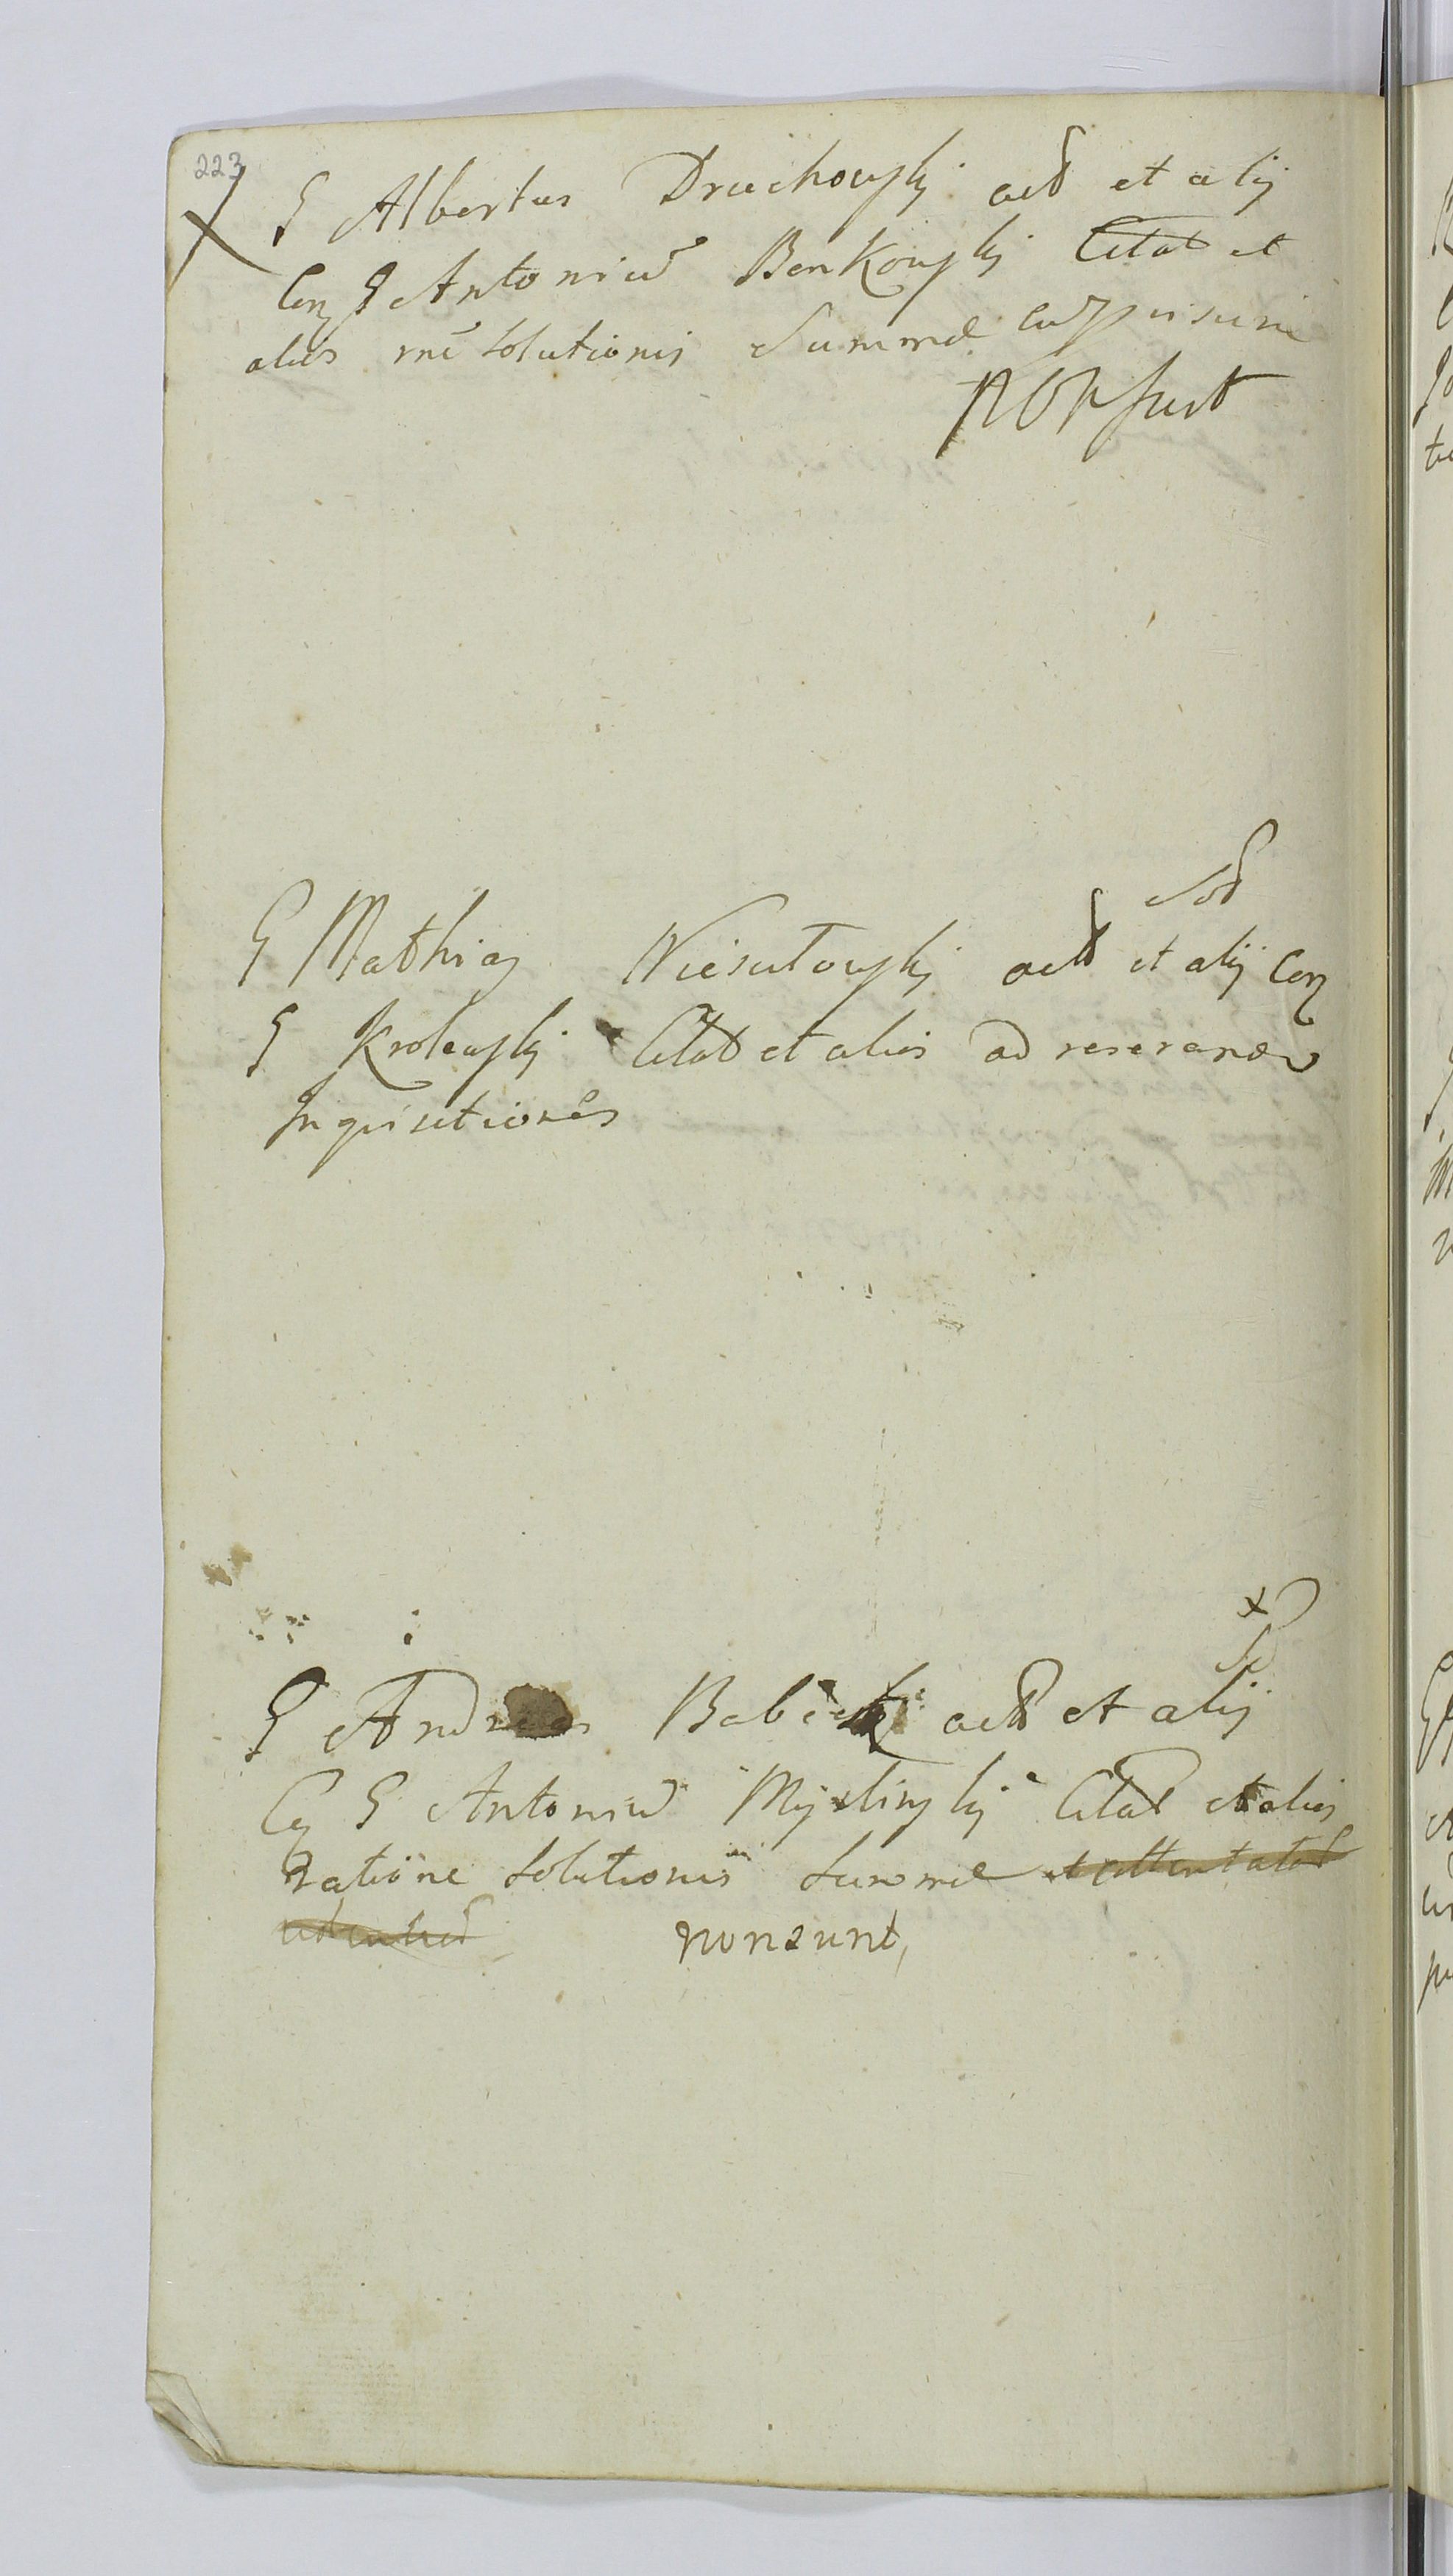 223
G Albertus Druchowskj actd et alij
Con G Antoniu Benkowskj Citat et
alios rne Solutionis Summæ
G Mathias Niesułowskj actd et alij Con
G Krolewskj Citat et alios ad reserand
Inquisitiones
G Andreas Babick actd et alij
Con G Antoniu Myslinskj Citat et alios
Ratione Solutionis Summæ et attentator
non sunt,